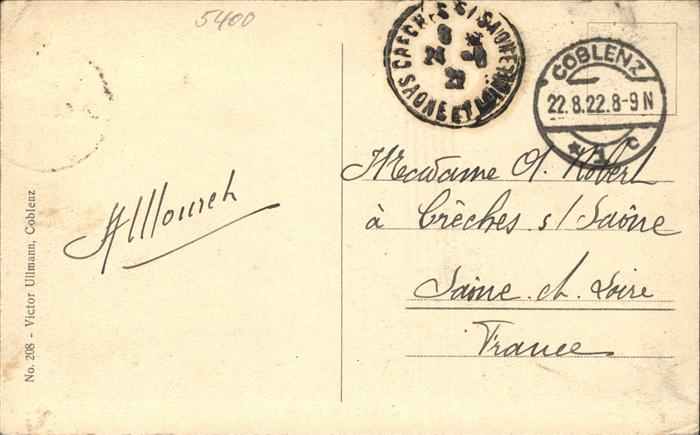 5400
CRÊCHES S/ SAÔNE
8
24 -8
22
SAONE ET LOIRE
COBLENZ
22.8.22.8-9 N
* 1 c
Madame A. Robert
à Crèches s/ Saône
Saône et Loire
France
No. 208 - Victor Ullmann, Coblenz